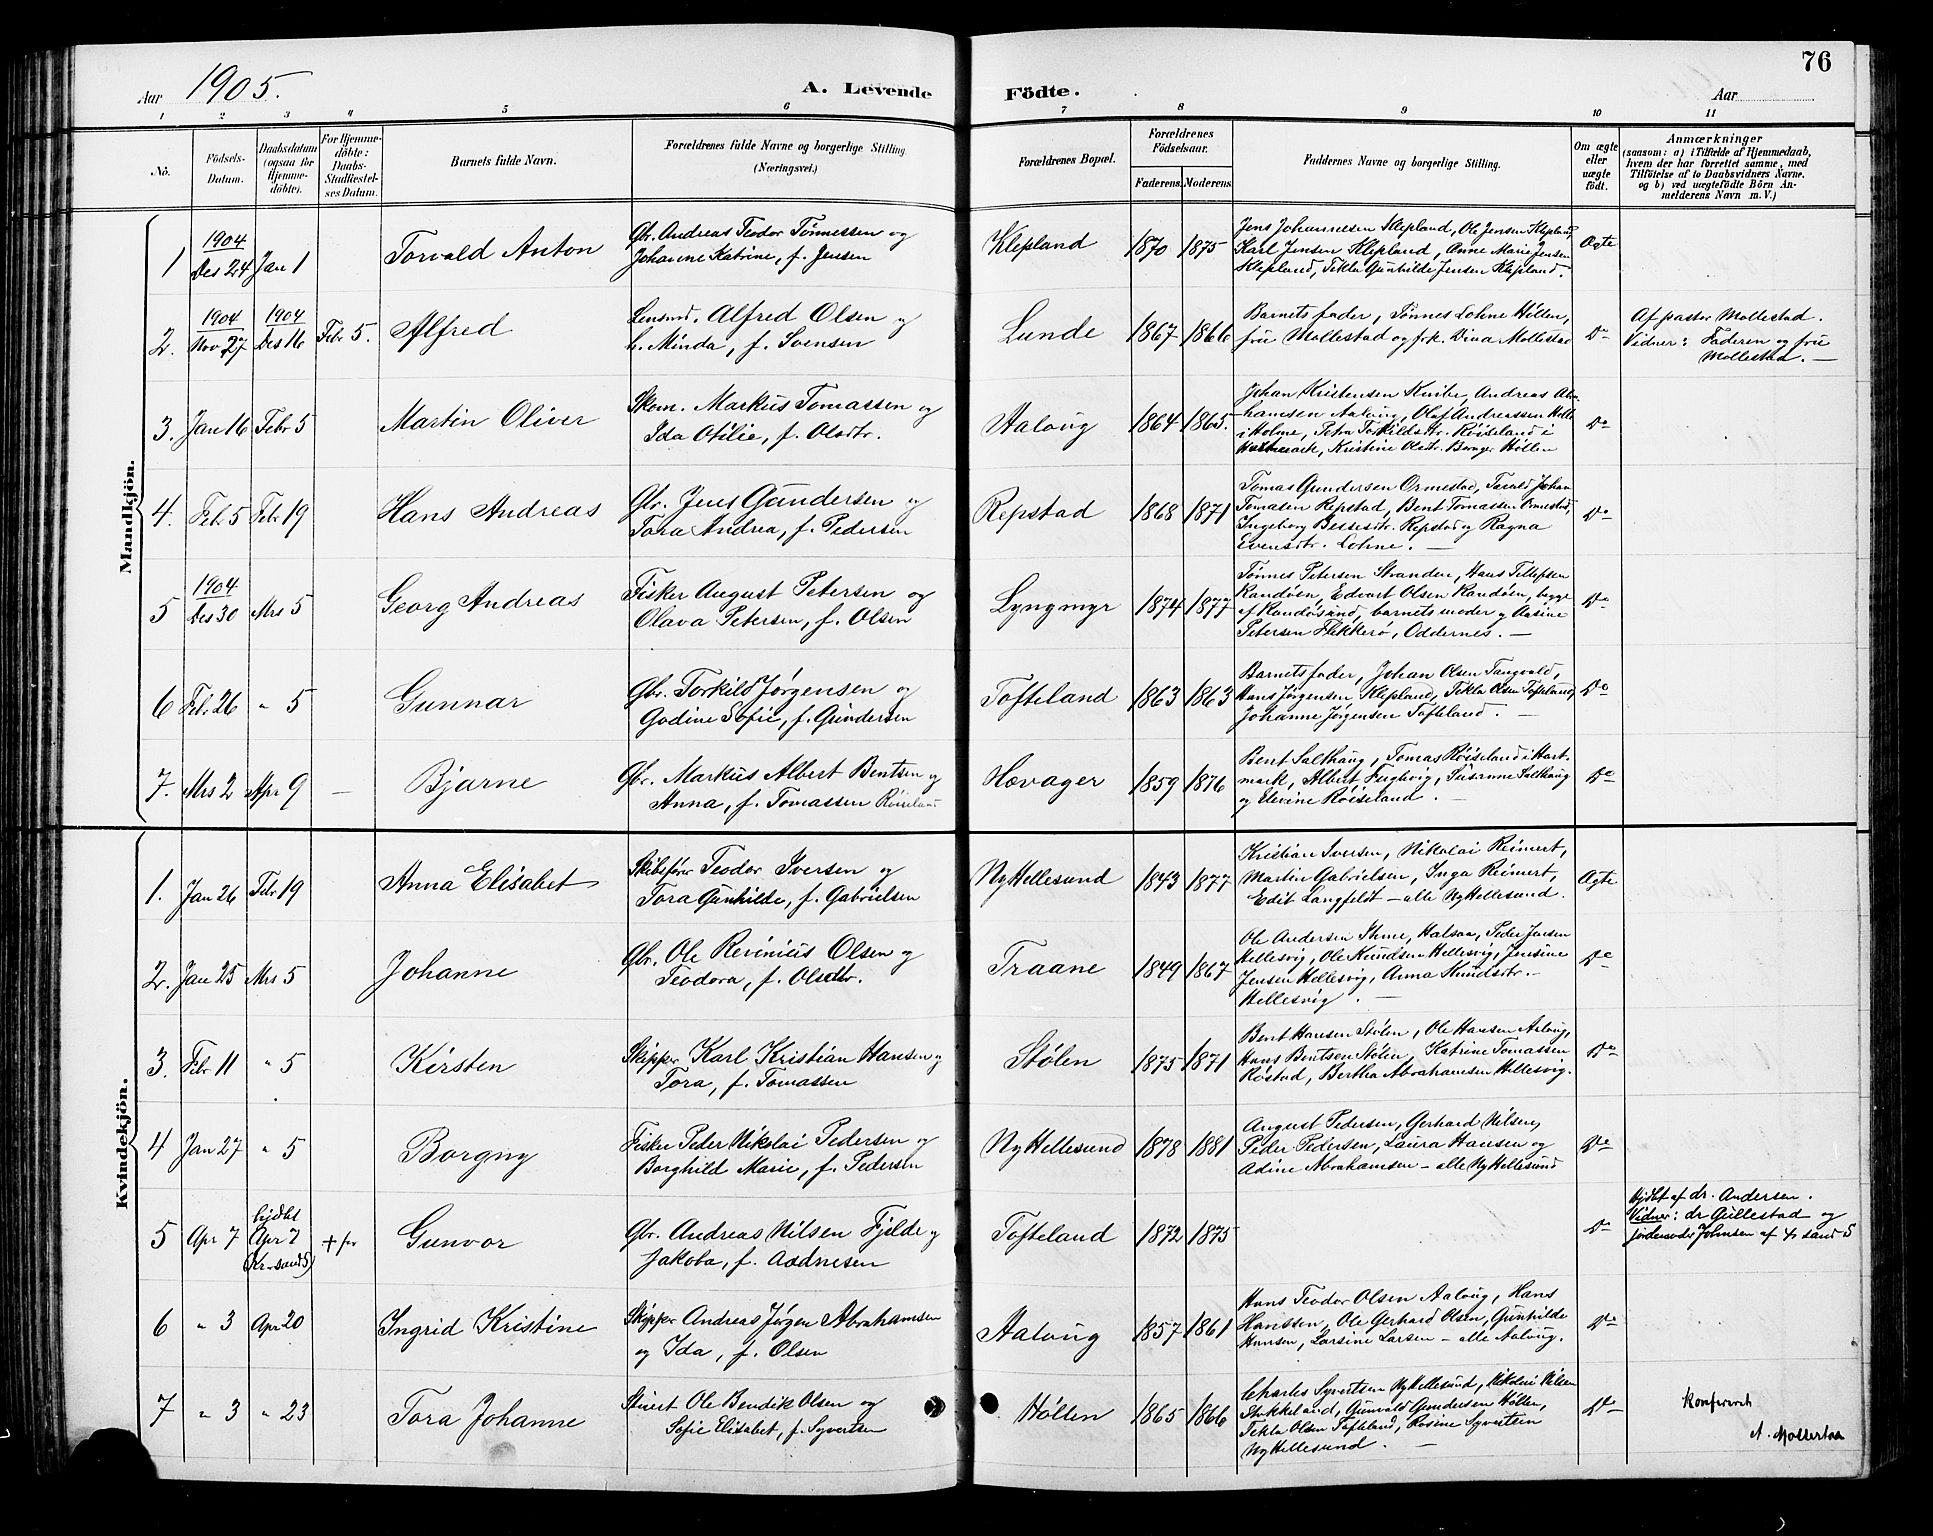 76
Aar 1905.
A. Levende
Födte.
Aar
1 2 3 4 5 6 7 8 9 10 11
No.
Födsels-
Datum.
Daabsdatum
(ogsaa for
Hjemme-
döbte).
For Hjemme-
döbte:
Daabs-
Stadfæstel-
ses Datum.
Barnets fulde Navn.
Forældrenes fulde Navne og borgerlige Stilling
(Næringsvei.)
Forældrenes Bopæl.
Forældrenes
Födselsaar.
Faderens. Moderens.
Faddernes Navne og borgerlige Stilling.
Om ægte
eller
uægte
födt.
Anmærkninger
(saasom: a) i Tilfælde af Hjemmedaab,
hvem der har forrettet samme, med
Tilföielse af to Daabsvidners Navne.
og b) ved uægtefödte Börn An-
melderens Navn m. V.)
Mandkjön.
1 1904 Des 24 Jan 1 Torvald Anton
Gbr. Andreas Teodor Tønnessen og
Johanne Katrine, f. Jensen
Klepland 1870 1875
Jens Johannesen Klepland, Ole Jensen Klepland,
Karl Jensen Klepland, Anne Marie Jensen
Klepland, Tekla Gunhilde Jensen Klepland.
Ægte
2. 1904 Nov 27 1904 Des 16 Febr 5. Alfred
Lensmd. Alfred Olsen og
h. Minda, f. Svensen
Lunde 1867 1866
Barnets fader, Tønnes Lohne Höllen,
fru Mollestad og frk. Dina Mollestad
Do
Af pastor Mollestad.
Vidner: Faderen og fru
Mollestad. —
3. Jan 16 Febr 5 Martin Oliver
Skom. Markus Tomassen og
Ida Otilie, f. Olsdtr.
Aalvug 1864 1865.
Johan Kristensen, Andreas Abra-
hamsen Aalvug, Olaf Andreassen
i Holme, Petra Torkildsdtr. Röiseland i
Hartmark, Kristine Olsdtr. Höllen
Do
4. Febr 5 Febr 19 Hans Andreas
Gbr. Jens Gundersen og
Tora Andrea, f. Pedersen
Repstad 1868 1871
Tomas Gundersen Ormestad, Tarald Johan
Tomasen Repstad, Bent Tomassen Ormestad,
Ingeborg Bessesdtr. Repstad og Ragna
Evensdtr. Lohne. —
Do
5 1904 Des 30 Mrs 5 Georg Andreas
Fisker August Petersen og
Olava Petersen, f. Olsen
Lyngmyr 1874 1877
Tønnes Petersen Stranden, Hans Tellefsen
Randöen, Edvart Olsen Randöen, begge
af Randösund, barnets moder og Aasine
Petersen Flekkerø, Oddernes. —
Do
6 Febr 26 " 5 Gunnar
Gbr. Torkild Jørgensen og
Godine Sofie, f. Gundersen
Tofteland 1863 1863
Barnets fader, Johan Olsen Tangvald,
Hans Jørgensen Klepland, Tekla Olsen Tofteland,
Johanne Jørgensen Tofteland. —
Do
7. Mrs 2 Apr 9 — Bjarne
Gbr. Markus Albert Bentsen og
Anna, f. Tomassen Röiseland
Hævager 1859 1876
Bent Salthaug, Tomas Röiseland i Hart-
mark, Albert Fuglevig, Susanne Salthaug
og Elevine Röiseland. —
Do
Kvindekjön.
1. Jan 26 Febr 19 Anna Elisabet
Skibsfører Teodor Iversen og
Tora Gunhilde, f. Gabrielsen
Ny Hellesund 1843 1877
Kristian Iversen, Nikolai Reinert,
Martin Gabrielsen, Inga Reinert,
Edit Langfeldt — alle Ny Hellesund.
Ægte
2. Jan 25 Mrs 5 Johanne
Gbr. Ole Revinius Olsen og
Teodora, f. Olsdtr.
Traane 1849 1867
Ole Andersen Ihme, Halsaa, Peder Jensen
Hellesvig, Ole Knudsen Hellesvig, Jensine
Jensen Hellesvig, Anna Knudsdtr. —
Hellesvig. —
Do
3. Febr 11 " 5 Kirsten
Skipper Karl Kristian Hansen og
Tora, f. Tomassen
Stølen 1875 1871
Bent Hansen Stølen, Ole Hansen Aalvug,
Hans Bentsen Stølen, Katrine Tomassen
Røstad, Bertha Abrahamsen Hellesvig.
Do
4 Jan 27 " 5 Borgny
Fisker Peder Nikolai Pedersen og
Borghild Marie, f. Pedersen
Ny Hellesund 1878 1881
August Pedersen, Gerhard Nilsen,
Peder Pedersen, Laura Hansen og
Adine Abrahamsen — alle Ny Hellesund
Do
5 Apr 7 hjdbt Apr 7 (Kr.sand S) + før Gunvor
Gbr. Andreas Nilsen Fjelde og
Jakoba, f. Aadnesen
Tofteland 1872 1875
Do
Hjdbt af dr. Andersen.
Vidner: dr Gullestad og
jordemoder Johnsen af Kr sand S
6 " 3 Apr 20 Ingrid Kristine
Skipper Andreas Jørgen Abrahamsen
og Ida, f. Olsen
Aalvug 1857 1861
Hans Teodor Olsen Aalvug, Hans
Hanssen, Ole Gerhard Olsen, Gunhilde
Hansen, Larsine Larsen — alle Aalvug.
Do
7 " 3 " 23 Tora Johanne
Stuert Ole Bendik Olsen og
Sofie Elisabet, f. Syvertsen
Höllen 1865 1866
Charles Syvertsen Ny Hellesund, Nikolai Nilsen
Stokkeland, Gunvald Gundersen Höllen,
Tekla Olsen Tofteland, Rosine Syvertsen
Ny Hellesund. —
Do
Konfereret
A. Mollestad